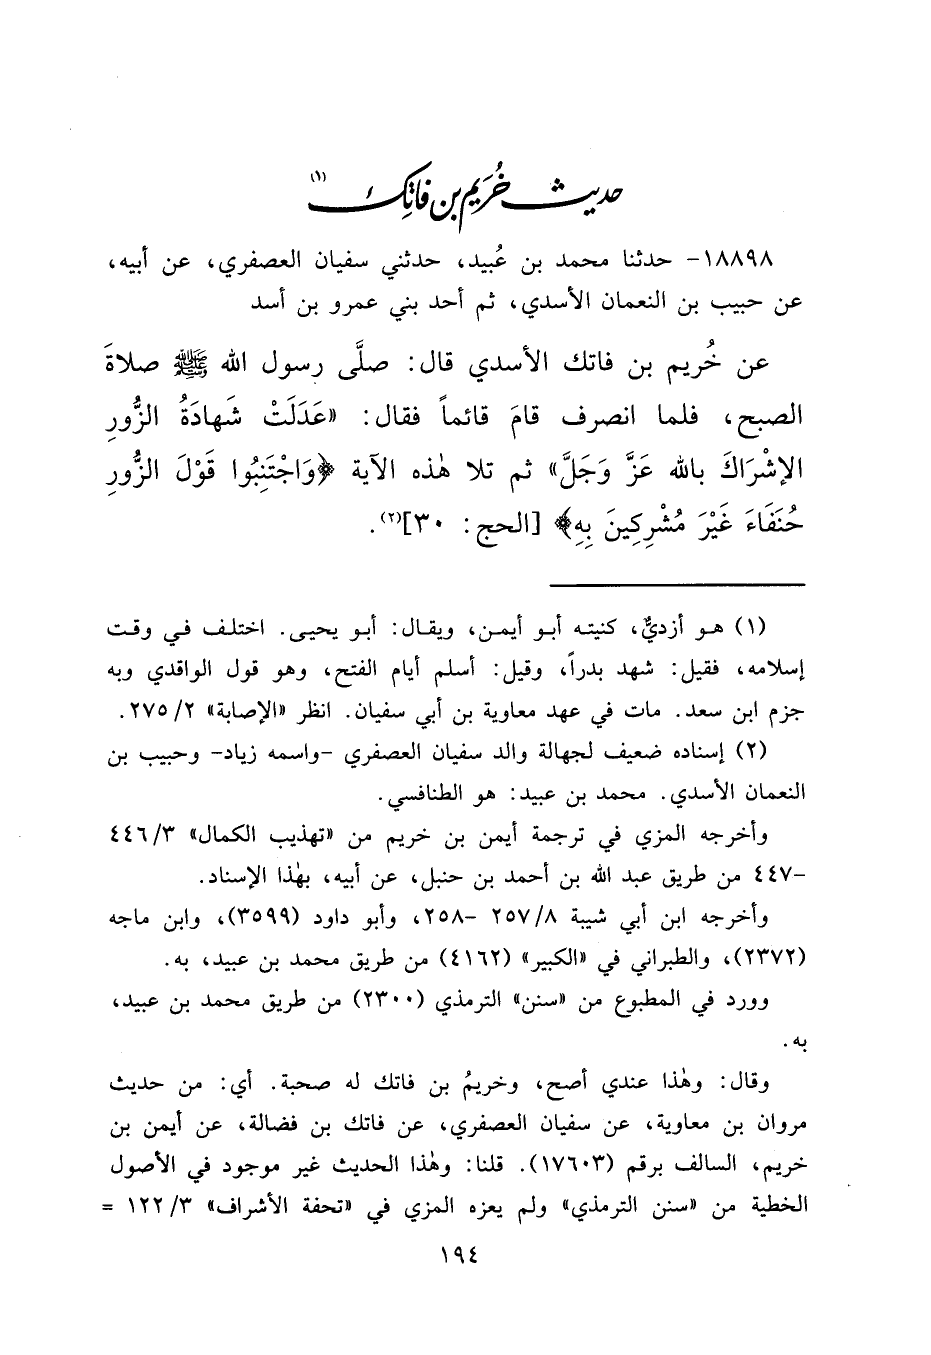 حديث خُرَيم بن فاتِك (١)
١٨٨٩٨- حدثنا محمد بن عُبيد، حدثني سفيان العصفري، عن أبيه،
عن حبيب بن النعمان الأسدي، ثم أحد بني عمرو بن أسد
عن خُريم بن فاتك الأسدي قال: صلَّى رسول الله ﷺ صلاةَ
الصبح، فلما انصرف قامَ قائماً فقال: «عَدَلَتْ شَهادَةُ الزُّورِ
الإشْرَاكَ بالله عَزَّ وَجَلَّ» ثم تلا هٰذه الآية ﴿وَاجْتَنِبُوا قَوْلَ الزُّورِ
حُنَفَاءَ غَيْرَ مُشْرِكِينَ بِهِ﴾ [الحج: ٣٠](٢).
(١) هو أزديٌّ، كنيته أبو أيمن، ويقال: أبو يحيى. اختلف في وقت
إسلامه، فقيل: شهد بدراً، وقيل: أسلم أيام الفتح، وهو قول الواقدي وبه
جزم ابن سعد. مات في عهد معاوية بن أبي سفيان. انظر «الإصابة» ٢٧٥/٢.
(٢) إسناده ضعيف لجهالة والد سفيان العصفري -واسمه زياد- وحبيب بن
النعمان الأسدي. محمد بن عبيد: هو الطنافسي.
وأخرجه المزي في ترجمة أيمن بن خريم من «تهذيب الكمال» ٤٤٦/٣
-٤٤٧ من طريق عبد الله بن أحمد بن حنبل، عن أبيه، بهٰذا الإسناد.
وأخرجه ابن أبي شيبة ٢٥٧/٨ -٢٥٨، وأبو داود (٣٥٩٩)، وابن ماجه
(٢٣٧٢)، والطبراني في «الكبير» (٤١٦٢) من طريق محمد بن عبيد، به.
وورد في المطبوع من «سنن» الترمذي (٢٣٠٠) من طريق محمد بن عبيد،
به.
وقال: وهٰذا عندي أصح، وخريمُ بن فاتك له صحبة. أي: من حديث
مروان بن معاوية، عن سفيان العصفري، عن فاتك بن فضالة، عن أيمن بن
خريم، السالف برقم (١٧٦٠٣). قلنا: وهٰذا الحديث غير موجود في الأصول
الخطية من «سنن الترمذي» ولم يعزه المزي في «تحفة الأشراف» ١٢٢/٣ =
١٩٤